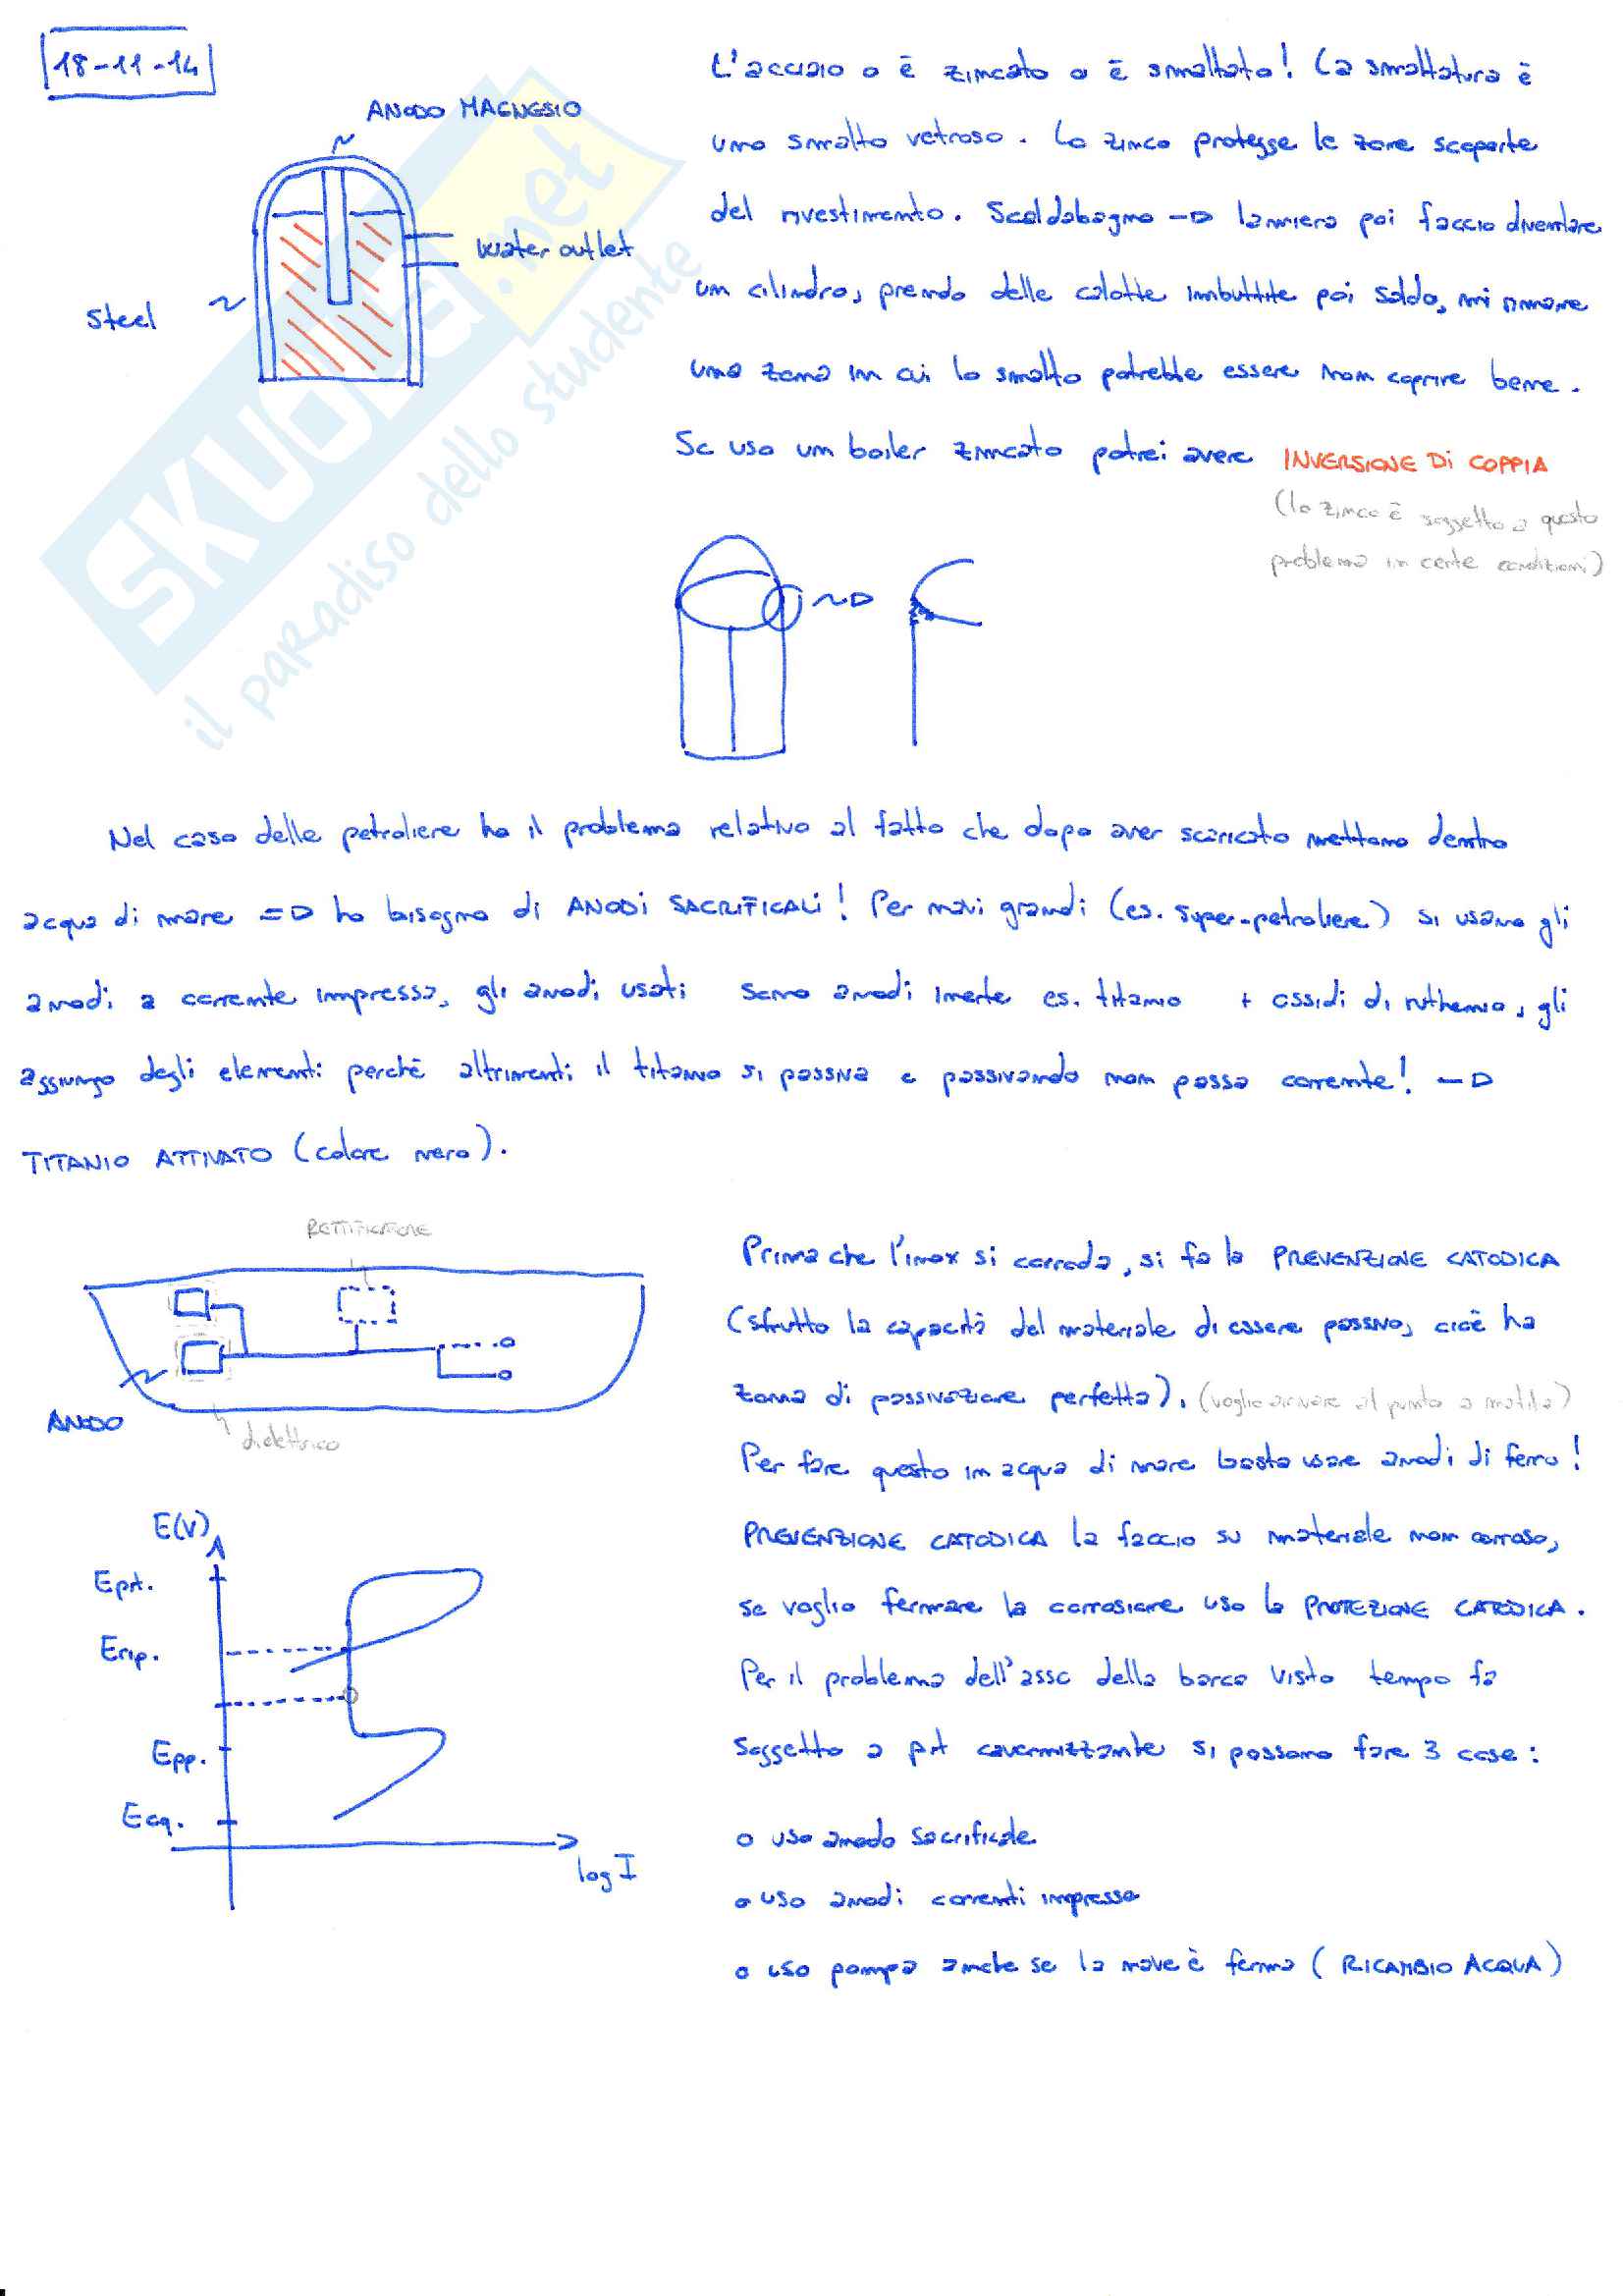 18-11-14
ANODO MAGNESIO
water outlet
Steel
L'acciaio o è zincato o è smaltato! La smaltatura è
uno smalto vetroso. Lo zinco protegge le zone scoperte
del rivestimento. Scaldabagno → lamiera poi faccio diventare
un cilindro, prendo delle calotte imbuttite poi saldo, mi rimane
una zona in cui lo smalto potrebbe essere non coprire bene.
Se uso un boiler zincato potrei avere INVERSIONE DI COPPIA
(lo zinco è soggetto a questo
problema in certe condizioni)
Nel caso delle petroliere ho il problema relativo al fatto che dopo aver scaricato mettono dentro
acqua di mare => ho bisogno di ANODI SACRIFICALI! Per navi grandi (es. super-petroliere) si usano gli
anodi a corrente impressa, gli anodi usati sono anodi inerte es. titanio + ossidi di ruthenio, gli
aggiungo degli elementi perchè altrimenti il titanio si passiva e passivando non passa corrente! →
TITANIO ATTIVATO (colore nero).
RETTIFICATORE
ANODO
dielettrico
Prima che l'inox si corroda, si fa la PREVENZIONE CATODICA
(sfrutto la capacità del materiale di essere passivo, cioè ha
zona di passivazione perfetta). (voglio arrivare al punto a matita)
Per fare questo in acqua di mare basta usare anodi di ferro!
PREVENZIONE CATODICA la faccio su materiale non corroso,
se voglio fermare la corrosione uso la PROTEZIONE CATODICA.
Per il problema dell'asse della barca visto tempo fa
soggetto a pit cavernizzante si possono fare 3 cose:
o uso anodo sacrificale
o uso anodi correnti impressa
o uso pompa anche se la nave è ferma (RICAMBIO ACQUA)
E(V)
Epit.
Erip.
Epp.
Eeq.
log I
SKUOLA.net
il paradiso dello studente